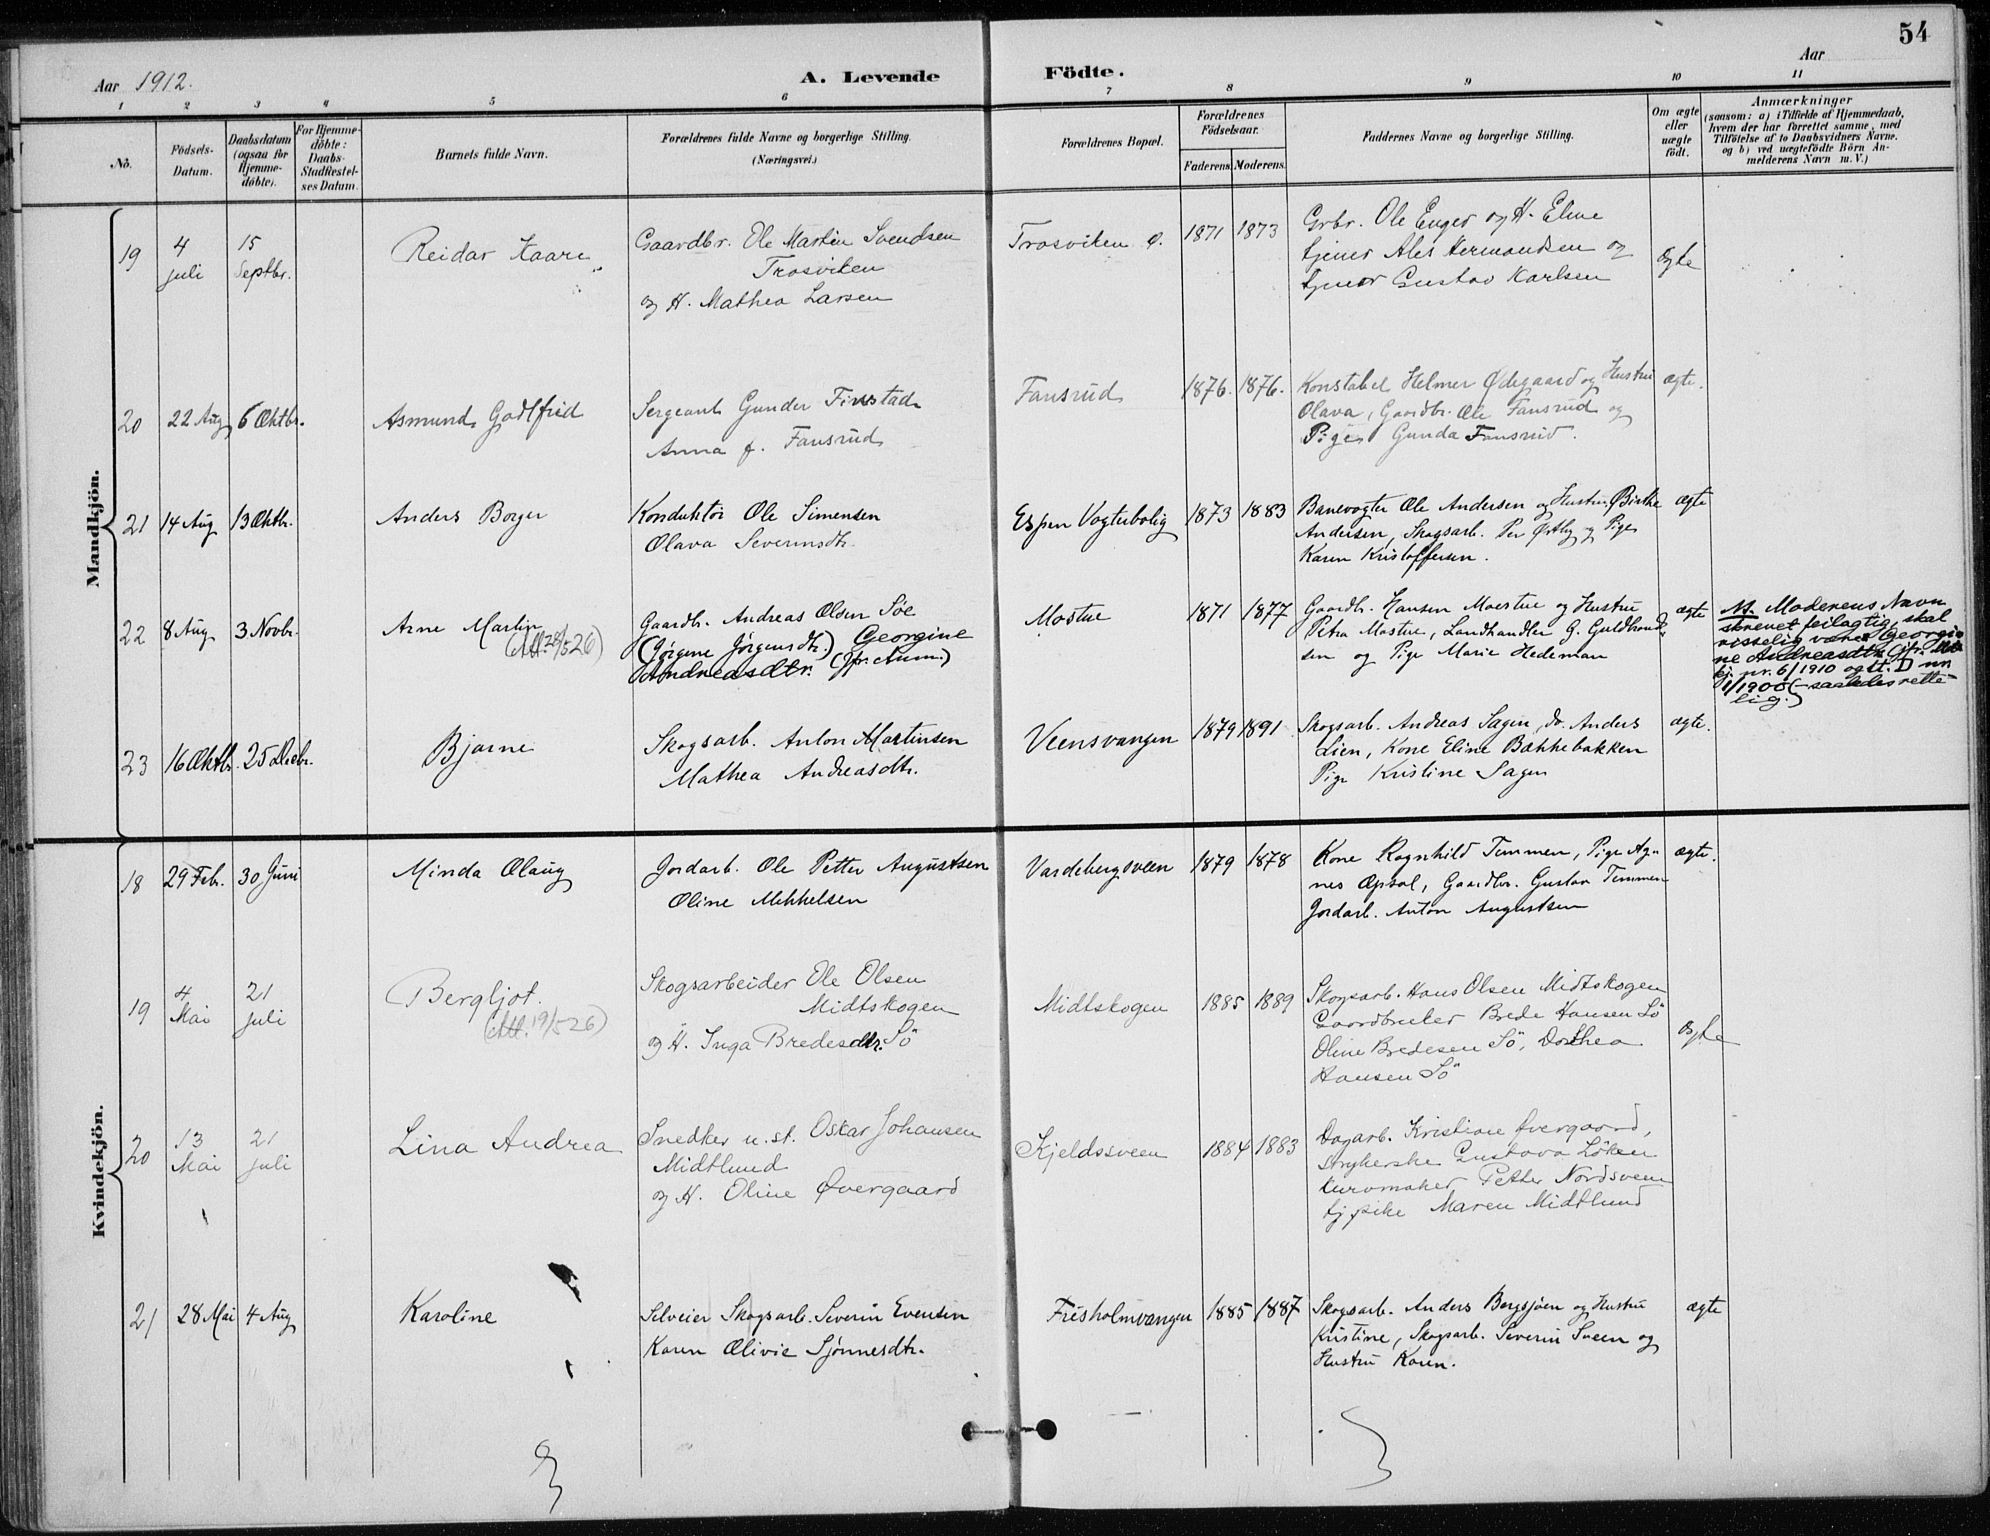 54
Aar 1912.
A. Levende Födte.
Aar
1 2 3 4 5 6 7 8 9 10 11
No.
Födsels-Datum.
Daabsdatum (ogsaa for Hjemme-döbte).
For Hjemme-döbte: Daabs-Stadfestel-ses Datum.
Barnets fulde Navn.
Forældrenes fulde Navne og borgerlige Stilling. (Næringsvei.)
Forældrenes Bopæl.
Forældrenes Födselsaar.
Faderens. Moderens.
Faddernes Navne og borgerlige Stilling.
Om ægte eller uægte födt.
Anmærkninger
(saasom: a) i Tilfælde af Hjemmedaab,
hvem der har forrettet samme, med
Tilföielse af to Daabsvidners Navne.
og b) ved uægtefödte Börn An-
melderens Navn m. V.)
Mandkjön.
19
4 juli
15 Septbr.
Reidar Kaare
Gaardbr. Ole Martin Svendsen
Trosviken
og H. Mathea Larsen
Trosviken ø.
1871 1873
Grbr. Ole Enger og H. Eline
tjener Alf Hermandsen og
tjener Gustav Karlsen
Ægte
20
22 Aug
6 Oktbr.
Asmund Godtfred
Sergeant Gunder Finstad
Anna f. Fansrud
Fansrud
1876. 1876.
Konstabel Helmer Ødegaard og Hustru
Olava, Gaardbr. Ole Fansrud og
Pige Gunda Fansrud.
ægte.
21
14 Aug
13 Oktbr.
Anders Borger
Konduktör Ole Simensen
Olava Severinsdtr.
Espen Vogterbolig
1873 1883
Banevogter Ole Andersen og Hustru Birthe
Andersen, Skogsarb. Per Østby og Pige
Karen Kristoffersen.
ægte
22
8 Aug
3 Novbr.
Arne Martin
(Att. 28/5 26)
Gaardbr. Andreas Olsen Söe
(Jørgine Jørgensdtr.) Georgine
Andreasdtr. (Jfr. Anm.)
Mostue
1871 1877
Gaardbr. Hansen Moestue og Hustru
Petra Mostue, Landhandler G. Guldbrand-
sen og Pige Marie Hedeman
ægte
NB. Moderens Navn
skrevet feilagtig, skal
visselig være Georgi-
ne Andreasdtr. (Jfr. M.
kj. nr. 6/1910 og lit. D nr.
1/1900 (– saaledes rette-
lig.)
23
16 Oktbr.
25 Decbr.
Bjarne
Skogsarb. Anton Martinsen
Mathea Andreasdtr.
Veensvangen
1879 1891
Skogsarb. Andreas Sagen, do. Anders
Lien, Kone Eline Bakkebakken
Pige Kristine Sagen
ægte.
Kvindekjön.
18
29 Febr.
30 Juni
Minda Olaug
Jordarb. Ole Petter Augustsen
Oline Mikkelsen
Vardebergsveen
1879 1878
Kone Ragnhild Timmen, Pige Ag-
nes Opsal, Gaardbr. Gustav Timmen
Jordarb. Anton Augustsen
ægte.
19
4 Mai
21 juli
Bergljot.
(Att. 19/5 26)
Skogsarbeider Ole Olsen
Midtskogen
og H. Inga Bredesdtr. Sö
Midtskogen
1885 1889
Skogsarb. Hans Olsen Midtskogen
Gaardbruker Brede Hansen Sö
Oline Bredesen Sö, Dorthea
Hansen Sö
Ægte
20
13 Mai
21 juli
Lina Andrea
Snedker u.st. Oskar Johansen
Midtlund
og H. Oline Øvergaard
Kjeldssveen
1884 1883
Dagarb. Kristian Øvergaard,
strykerske Gustava Löken
kurvmaker Petter Nordsveen
tj.pike Maren Midtlund
21
28 Mai
4 Aug
Karoline
Selveier Skogsarb. Severin Evensen
Karen Olivie Sjønnesdtr.
Frisholmvangen
1885 1887
Skogsarb. Anders Bergsjøen og Hustru
Kristine, Skogsarb. Severin Sveen og
Hustru Karen.
ægte